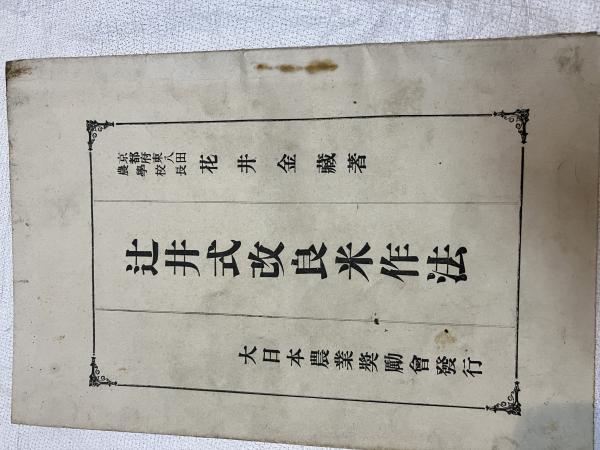 京都府東八田
農學校長
花井金藏著
辻井式改良米作法
大日本農業奬勵會發行